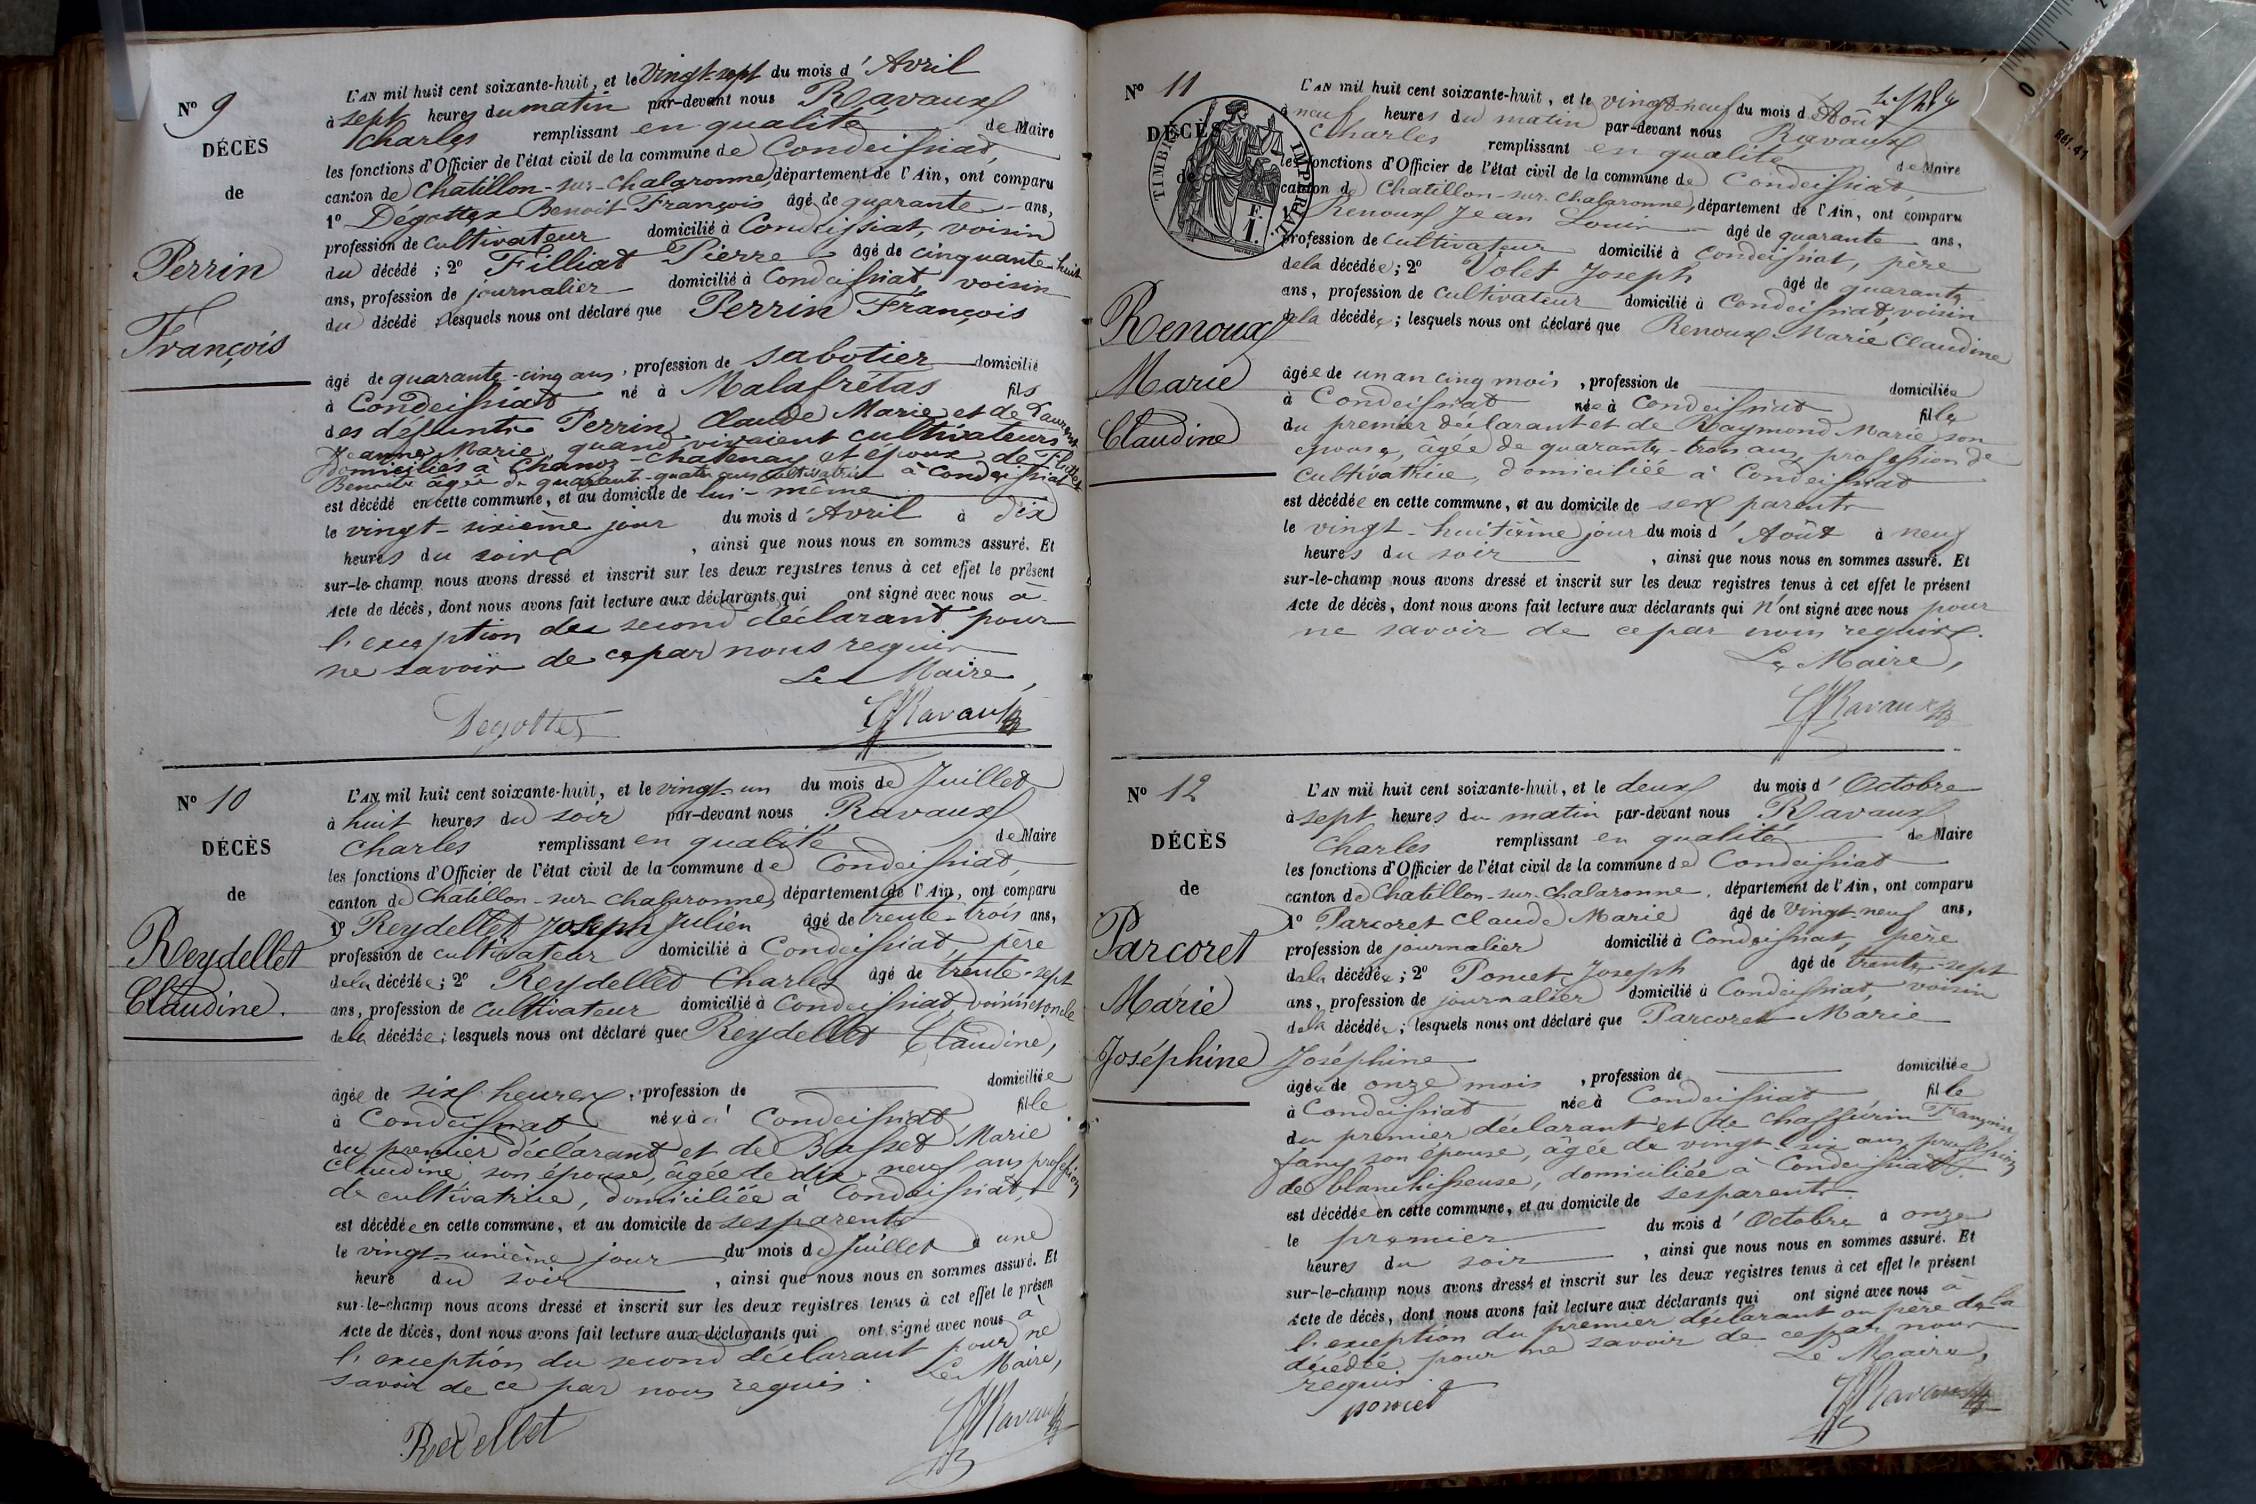 N° 9
DÉCÈS
de
Perrin
François
L'AN mil huit cent soixante-huit, et le Vingt-sept du mois d'Avril
à sept heures du matin par-devant nous Ravaux
Charles remplissant en qualité de Maire
les fonctions d'Officier de l'état civil de la commune de Condeissiat,
canton de Chatillon-sur-Chalaronne, département de l'Ain, ont comparu
1° Dégottex Benoit François âgé de quarante ans,
profession de cultivateur domicilié à Condeissiat, voisin
du décédé ; 2° Filliat Pierre âgé de cinquante-huit
ans, profession de journalier domicilié à Condeissiat, voisin
du décédé ; lesquels nous ont déclaré que Perrin François
âgé de quarante-cinq ans, profession de sabotier domicilié
à Condeissiat né à Malafrétas fils
des defunts Perrin Claude Marie et de Laurent
Jeanne Marie, quand vivaient cultivateurs
domiciliés à Chanoz-Chatenay et époux de
Benoite âgée de quarante-quatre ans cultivatrice à Condeissiat
est décédé en cette commune, et au domicile de lui-même
le vingt-sixième jour du mois d'Avril à dix
heures du soir, ainsi que nous nous en sommes assuré. Et
sur-le-champ nous avons dressé et inscrit sur les deux registres tenus à cet effet le présent
Acte de décès, dont nous avons fait lecture aux déclarants qui ont signé avec nous à
l'exception du second déclarant pour
ne savoir de ce par nous requis
Le Maire,
Degottex
CRavaux
N° 10
DÉCÈS
de
Reydellet
Claudine.
L'AN mil huit cent soixante-huit, et le vingt-un du mois de Juillet
à huit heures du soir par-devant nous Ravaux
Charles remplissant en qualité de Maire
les fonctions d'Officier de l'état civil de la commune de Condeissiat,
canton de Chatillon-sur-Chalaronne, département de l'Ain, ont comparu
1° Reydellet Joseph Julien âgé de trente-trois ans,
profession de cultivateur domicilié à Condeissiat, père
de la décédée ; 2° Reydellet Charles âgé de trente-sept
ans, profession de cultivateur domicilié à Condeissiat, voisin et oncle
de la décédée ; lesquels nous ont déclaré que Reydellet Claudine,
âgée de six heures, profession de domiciliée
à Condeissiat née à Condeissiat fille
du premier déclarant et de Basset Marie
Claudine son épouse, âgée de dix-neuf ans profession
de cultivatrice, domiciliée à Condeissiat,
est décédée en cette commune, et au domicile de ses parents
le vingt-unième jour du mois de Juillet à une
heure du soir, ainsi que nous nous en sommes assuré. Et
sur-le-champ nous avons dressé et inscrit sur les deux registres tenus à cet effet le présen
Acte de décès, dont nous avons fait lecture aux déclarants qui ont signé avec nous à
l'exception du second déclarant pour ne
savoir de ce par nous requis.
Le Maire,
Redellet
CRavaux
N° 11
DÉCÈS
de
TIMBRE IMPÉRIAL
F.
1.
Renoux
Marie
Claudine
L'AN mil huit cent soixante-huit, et le vingt-neuf du mois d'Août
à neuf heures du matin par-devant nous Ravaux
Charles remplissant en qualité de Maire
les fonctions d'Officier de l'état civil de la commune de Condeissiat,
canton de Chatillon-sur-Chalaronne, département de l'Ain, ont comparu
1° Renoux Jean Louis âgé de quarante ans,
profession de cultivateur domicilié à Condeissiat, père
de la décédée ; 2° Volet Joseph âgé de quarante
ans, profession de cultivateur domicilié à Condeissiat, voisin
de la décédée ; lesquels nous ont déclaré que Renoux Marie Claudine
âgée de un an cinq mois, profession de domiciliée
à Condeissiat née à Condeissiat fille
du premier déclarant et de Raymond Marie son
épouse, âgée de quarante-trois ans, profession de
cultivatrice, domiciliée à Condeissiat
est décédée en cette commune, et au domicile de ses parents
le vingt-huitième jour du mois d'Août à neuf
heures du soir, ainsi que nous nous en sommes assuré. Et
sur-le-champ nous avons dressé et inscrit sur les deux registres tenus à cet effet le présent
Acte de décès, dont nous avons fait lecture aux déclarants qui n'ont signé avec nous pour
ne savoir de ce par nous requis.
Le Maire,
CRavaux
N° 12
DÉCÈS
de
Parcoret
Marie
Joséphine
L'AN mil huit cent soixante-huit, et le deux du mois d'Octobre
à sept heures du matin par-devant nous Ravaux
Charles remplissant en qualité de Maire
les fonctions d'Officier de l'état civil de la commune de Condeissiat
canton de Chatillon-sur-Chalaronne, département de l'Ain, ont comparu
1° Parcoret Claude Marie âgé de Vingt-neuf ans,
profession de journalier domicilié à Condeissiat, père
de la décédée ; 2° Poncet Joseph âgé de trente-sept
ans, profession de journalier domicilié à Condeissiat, voisin
de la décédée ; lesquels nous ont déclaré que Parcoret Marie
Joséphine
âgée de onze mois, profession de domiciliée
à Condeissiat née à Condeissiat fille
du premier déclarant et de Chaffurin Françoise
Fany son épouse, âgée de vingt-six ans, profession
de blanchisseuse, domiciliée à Condeissiat.
est décédée en cette commune, et au domicile de ses parents
le premier du mois d'Octobre à onze
heures du soir, ainsi que nous nous en sommes assuré. Et
sur-le-champ nous avons dressé et inscrit sur les deux registres tenus à cet effet le présent
Acte de décès, dont nous avons fait lecture aux déclarants qui ont signé avec nous à
l'exception du premier déclarant ou père de la
décédée, pour ne savoir de ce par nous
requis.
Le Maire,
poncet
CRavaux
Réf. 41
0 1 2